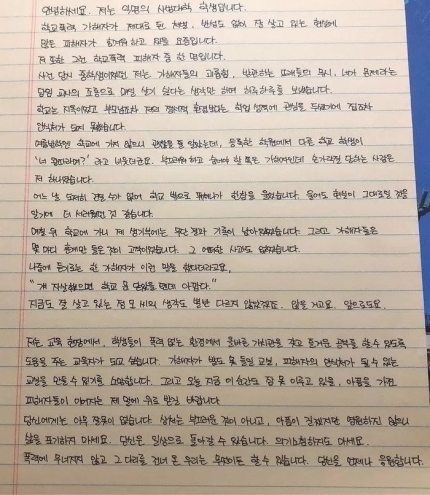 안녕하세요. 저는 익명의 사범대학 학생입니다.
학교폭력 가해자가 제대로 된 처벌, 반성도 없이 잘 살고 있는 현실에
많은 피해자가 힘겨워하고 있을 요즘입니다.
저 또한 그런 학교폭력 피해자 중 한 명입니다.
사건 당시 중학생이었던 저는, 가해자들의 괴롭힘, 방관하는 또래들의 무시, 네가 문제라는
담임 교사의 조롱으로 매일 살기 싫다는 생각만 하며 하루하루를 보냈습니다.
학교는 지옥이었고 부모님조차 저의 정서적 환경보다는 학업 성적에 관심을 두셨기에 집조차
안식처가 되지 못했습니다.
여름방학엔 학교에 가지 않으니 괜찮을 줄 알았는데, 등록한 학원에서 다른 학교 학생이
'너 왕따라며?' 라고 비웃더군요. 부끄러워하고 숨어야 할 쪽은 가해자인데 손가락질 당하는 사람은
저 하나였습니다.
어느 날 도저히 견딜 수가 없어 학교 밖으로 뛰쳐나가 한참을 울었습니다. 울어도 현실이 그대로일 것을
알기에 더 서러웠던 것 같습니다.
며칠 뒤 학교에 가니 제 생기부에는 무단 결과 기록이 남아있었습니다. 그리고 가해자들은
몇 마디 훈계만 들은 것이 고작이었습니다. 그 어떠한 사과도 없었습니다.
나중에 듣기로는 한 가해자가 이런 말을 했다더라고요.
"걔 자살했으면 학교 몇 달 쉴 텐데 아깝다."
지금도 잘 살고 있는 정 모씨의 생각도 별반 다르지 않겠죠. 않을 거고요. 앞으로도요.
저는 교육 현장에서, 학생들이 폭력 없는 환경에서 올바른 가치관을 갖고 즐거운 공부를 할 수 있도록
도움을 주는 교육자가 되고 싶습니다. 가해자가 발도 못 들일 교실, 피해자의 안식처가 될 수 있는
교실을 만들 수 있기를 소망합니다. 그리고 오늘 지금 이 순간도 잠 못 이루고 있을, 아픔을 가진
피해자들이 이야기는 제 말에 위로 받길 바랍니다
당신에게는 아무 잘못이 없습니다. 상처는 부끄러운 것이 아니고, 아픔이 길겠지만 영원하진 않으니
삶을 포기하지 마세요. 당신은 일상으로 돌아갈 수 있습니다. 의기소침하지도 마세요.
폭력에 무너지지 않고 그 다리를 건너 온 우리는 무엇이든 할 수 있습니다. 당신을 언제나 응원합니다.